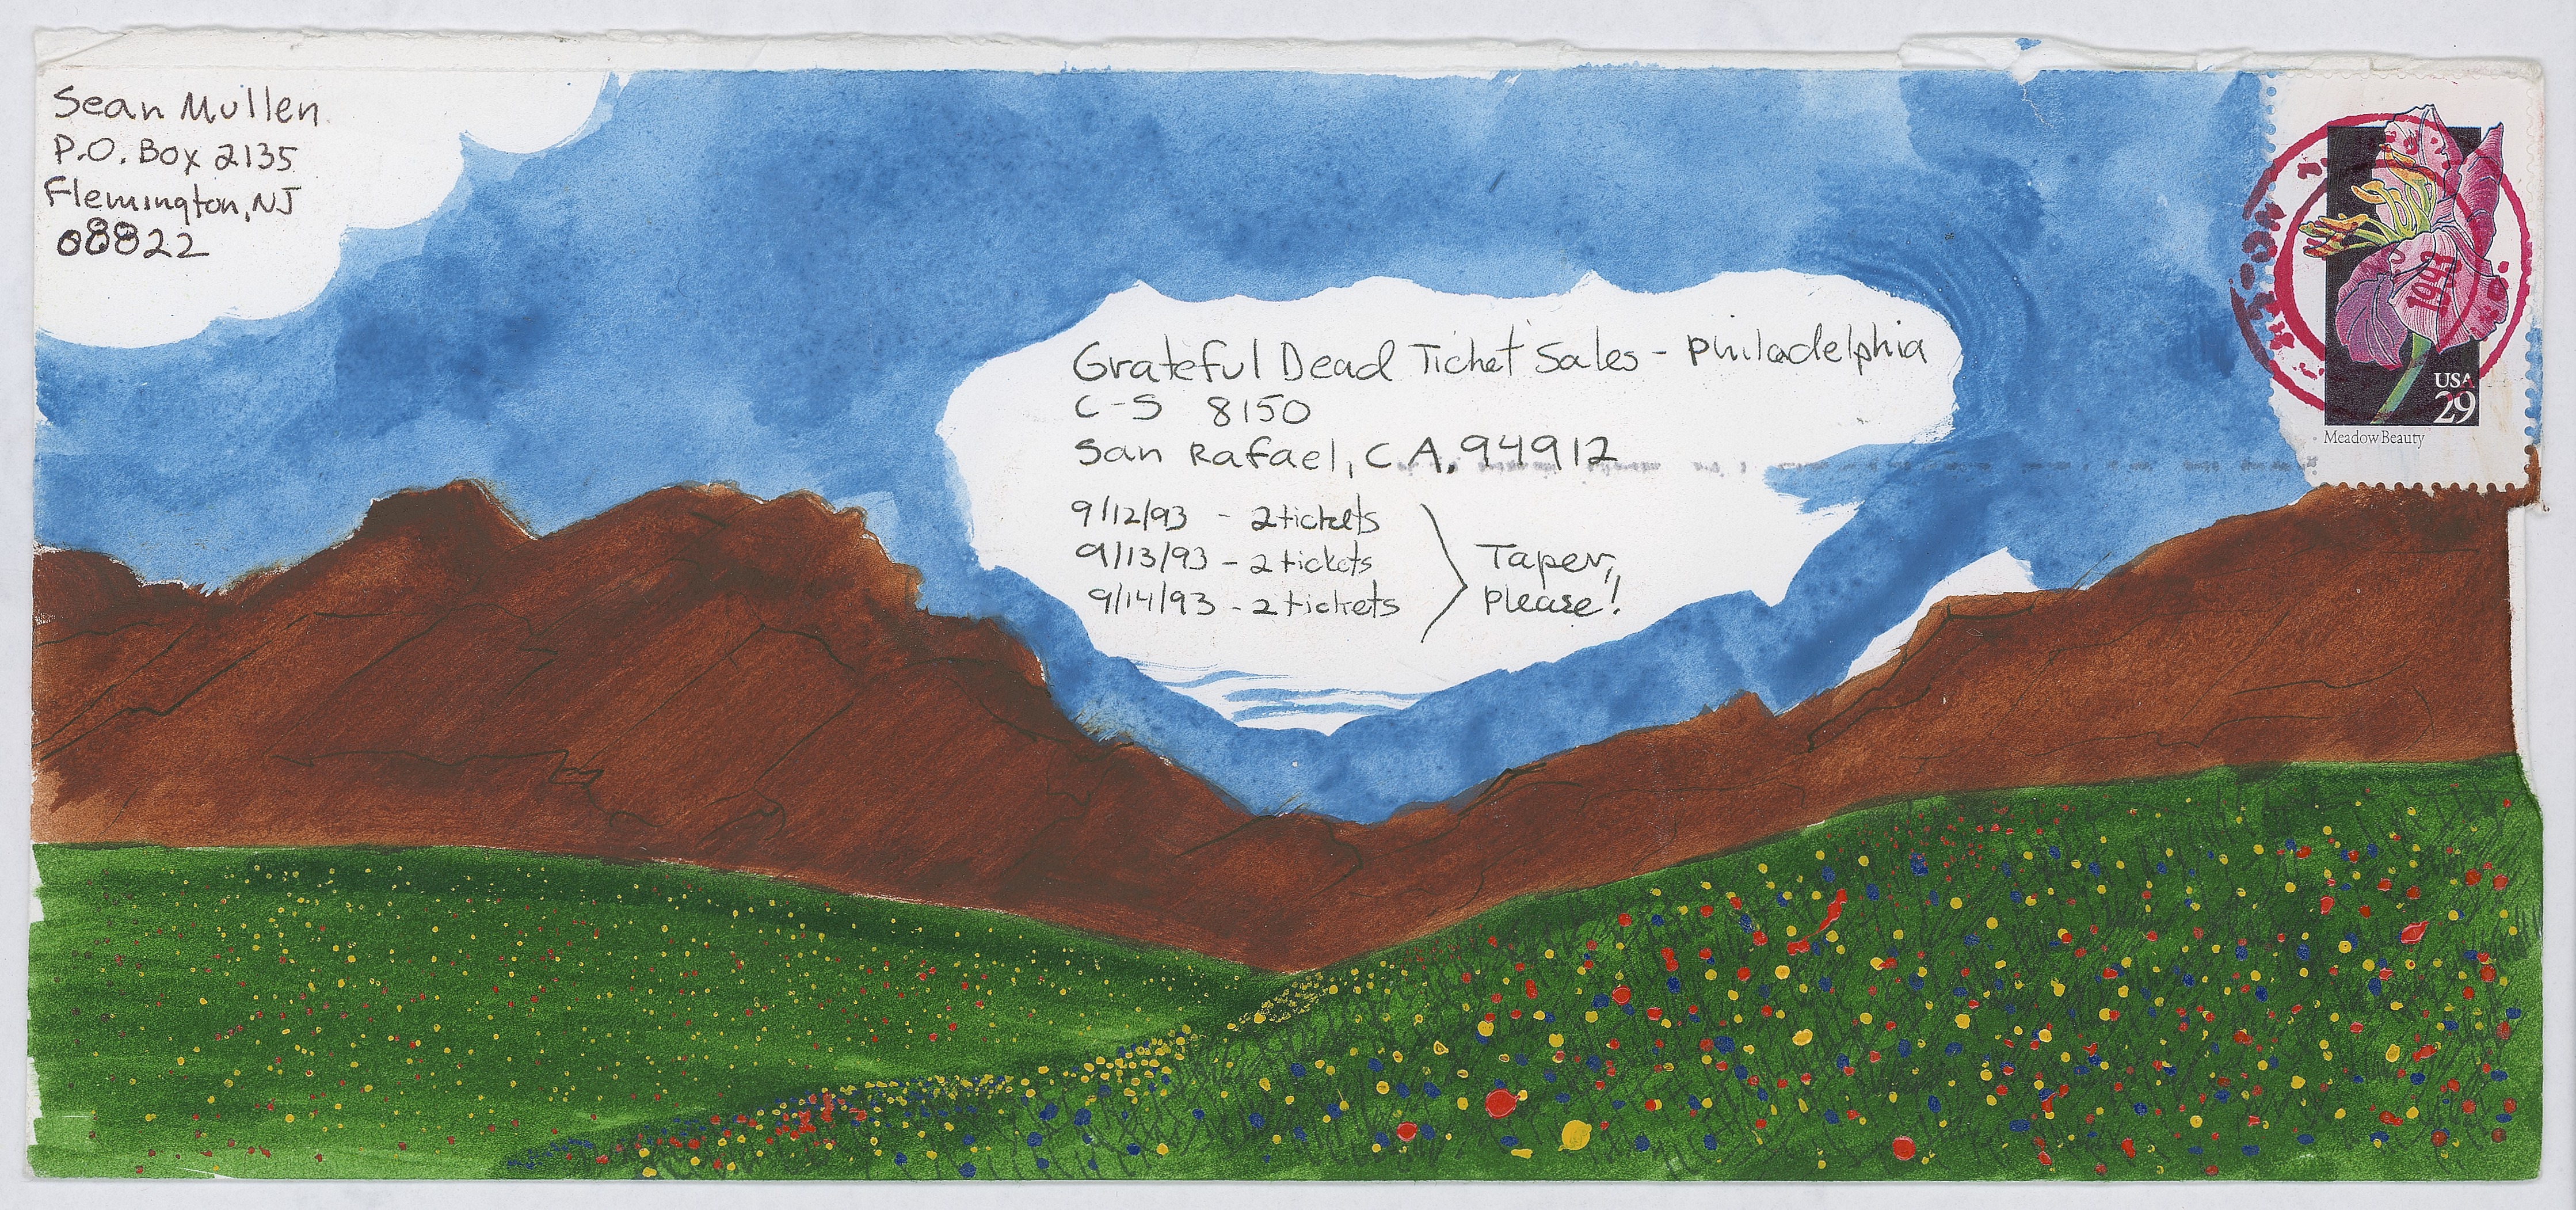 Sean Mullen
P.O. Box 2135
Flemington, NJ
08822
Grateful Dead Ticket Sales - Philadelphia
C-S 8150
San Rafael, CA. 94912
9/12/93 - 2 tickets
9/13/93 - 2 tickets
9/14/93 - 2 tickets
Taper,
Please!
USA
29
Meadow Beauty